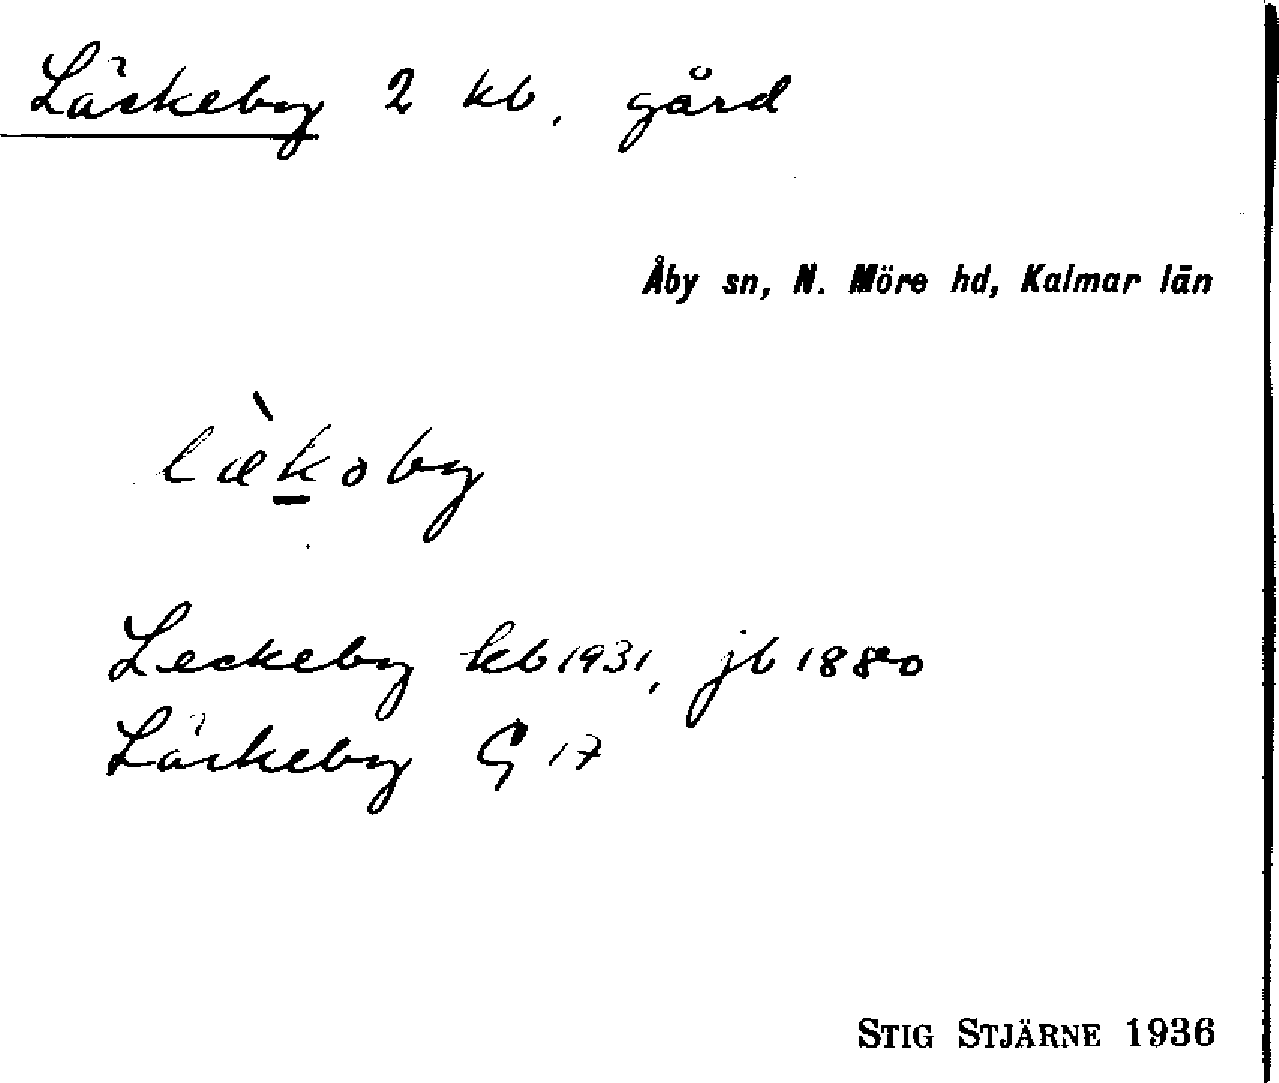 Läckeby 2 kb, gård
Åby sn, N. Möre hd, Kalmar län
læ̀ḵoby
Leckeby kb 1931, jb 1880
Läckeby G 17
STIG STJÄRNE 1936